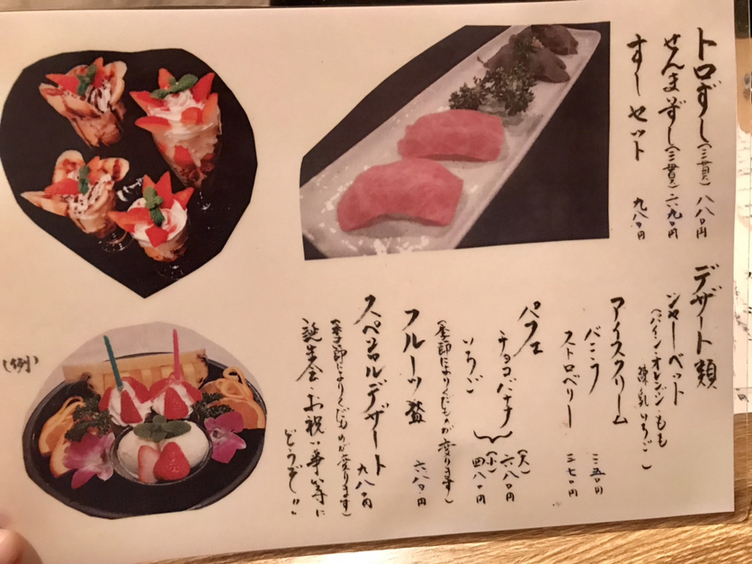 トロずし(二貫) 八八〇円
せんまずし(二貫) 六九〇円
すしセット 九八〇円
デザート類
シャーベット
(パイン・オレンジ・もも
練乳いちご)
アイスクリーム
バニラ 二五〇円
ストロベリー 二七〇円
パフェ
チョコバナナ (大) 六八〇円
いちご (小) 四八〇円
フルーツ盛 六八〇円
(季節によりくだものが変ります)
スペシャルデザート 九八〇円
(季節によりくだものが変ります)
誕生会・お祝い事等に
どうぞ!!
(例)